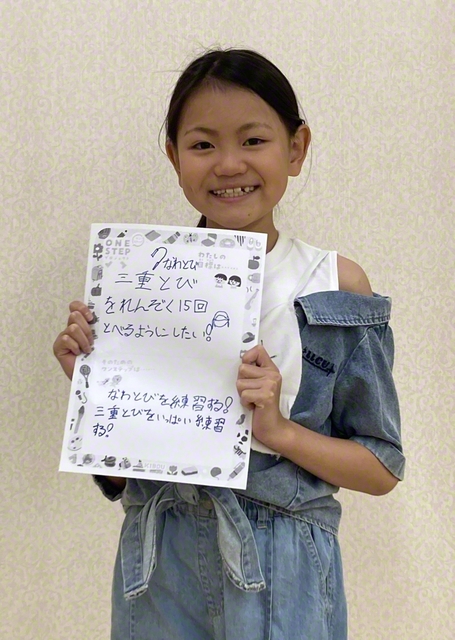 ONE
STEP
わたしの
目標は
なわとび
三重とび
をれんぞく15回
とべるようにしたい!
そのための
ワンステップは
なわとびを練習する!
三重とびをいっぱい練習
する!